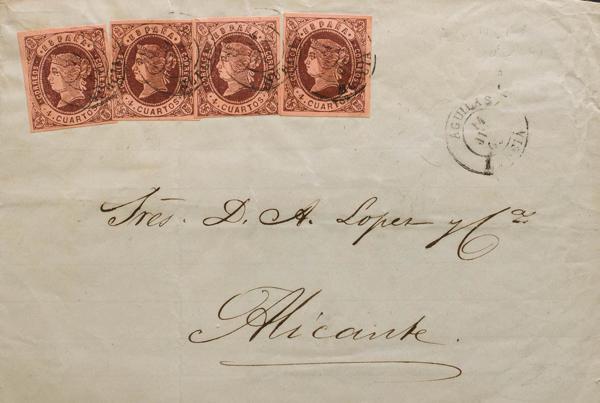 ESPAÑA
CORREOS
4 CUARTOS
ESPAÑA
CORREOS
4 CUARTOS
ESPAÑA
CORREOS
4 CUARTOS
ESPAÑA
CORREOS
4 CUARTOS
AGUILAS
Sres. D. A. Lopez y Ca
Alicante.